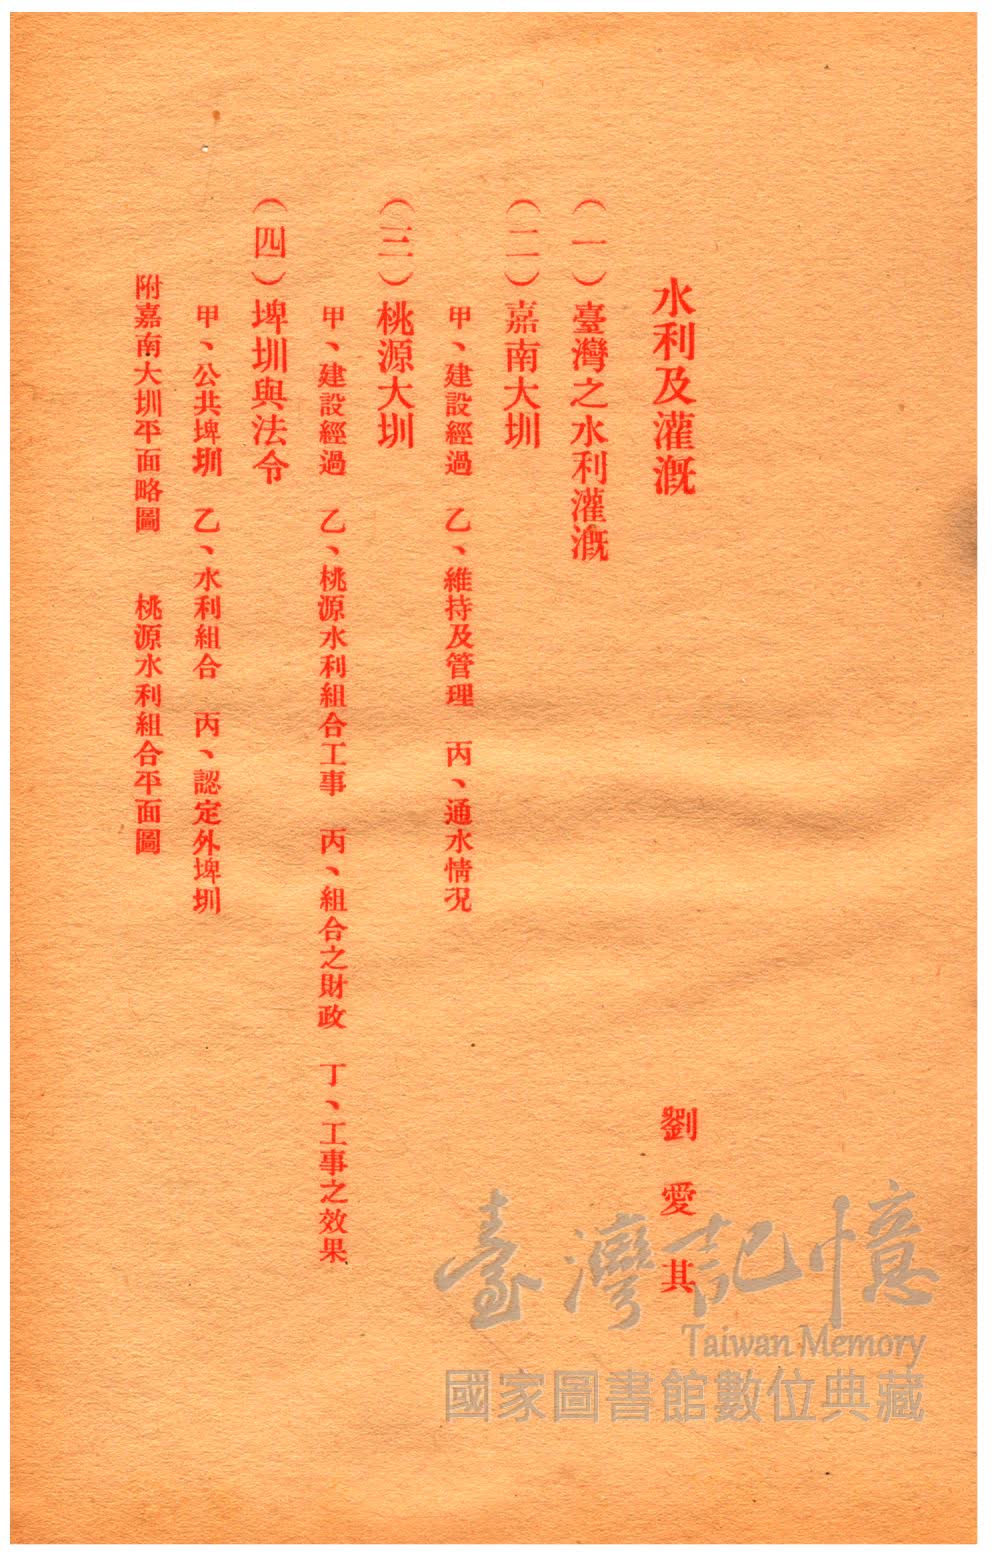 水利及灌漑
劉愛其
（一）臺灣之水利灌漑
（二）嘉南大圳
甲、建設經過　乙、維持及管理　丙、通水情况
（三）桃源大圳
甲、建設經過　乙、桃源水利組合工事　丙、組合之財政　丁、工事之效果
（四）埤圳與法令
甲、公共埤圳　乙、水利組合　丙、認定外埤圳
附嘉南大圳平面略圖　　桃源水利組合平面圖
臺灣記憶
Taiwan Memory
國家圖書館數位典藏